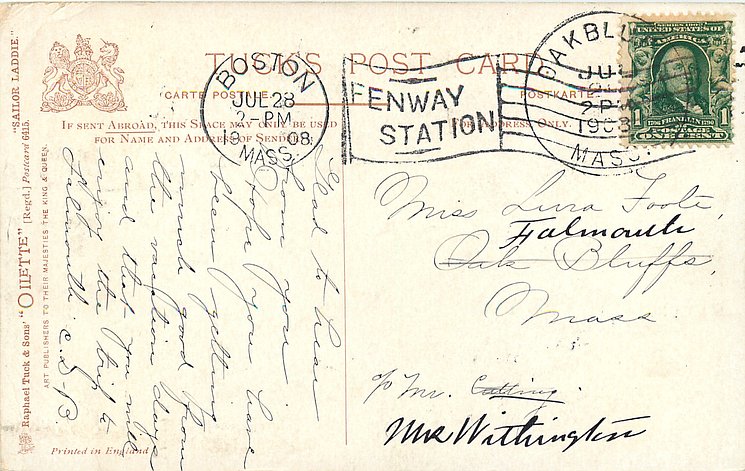 TUCK'S POST CARD
CARTE POSTALE.
POSTKARTE.
IF SENT ABROAD, THIS SPACE MAY ONLY BE USED
FOR NAME AND ADDRESS OF SENDER.
ADDRESS ONLY.
BOSTON
JUL 28
2-PM
1908
MASS.
FENWAY
STATION
OAK BLU
JUL
2 PM
1908
MASS.
SERIES 1902
UNITED STATES OF
AMERICA
1706 FRANKLIN 1790
1 ONE CENT 1
Glad to hear
from you
Hope you have
been getting
much good from
the vacation days
and that you will
enjoy the trip to
Falmouth. C.D-B
Miss Lura Foote,
Falmouth
Oak Bluffs,
Mass.
c/o Mr. Cutting.
Mr Withington
Raphael Tuck & Sons' "OILETTE" [Regd.] Postcard 6415. "SAILOR LADDIE."
ART PUBLISHERS TO THEIR MAJESTIES THE KING & QUEEN.
Printed in England